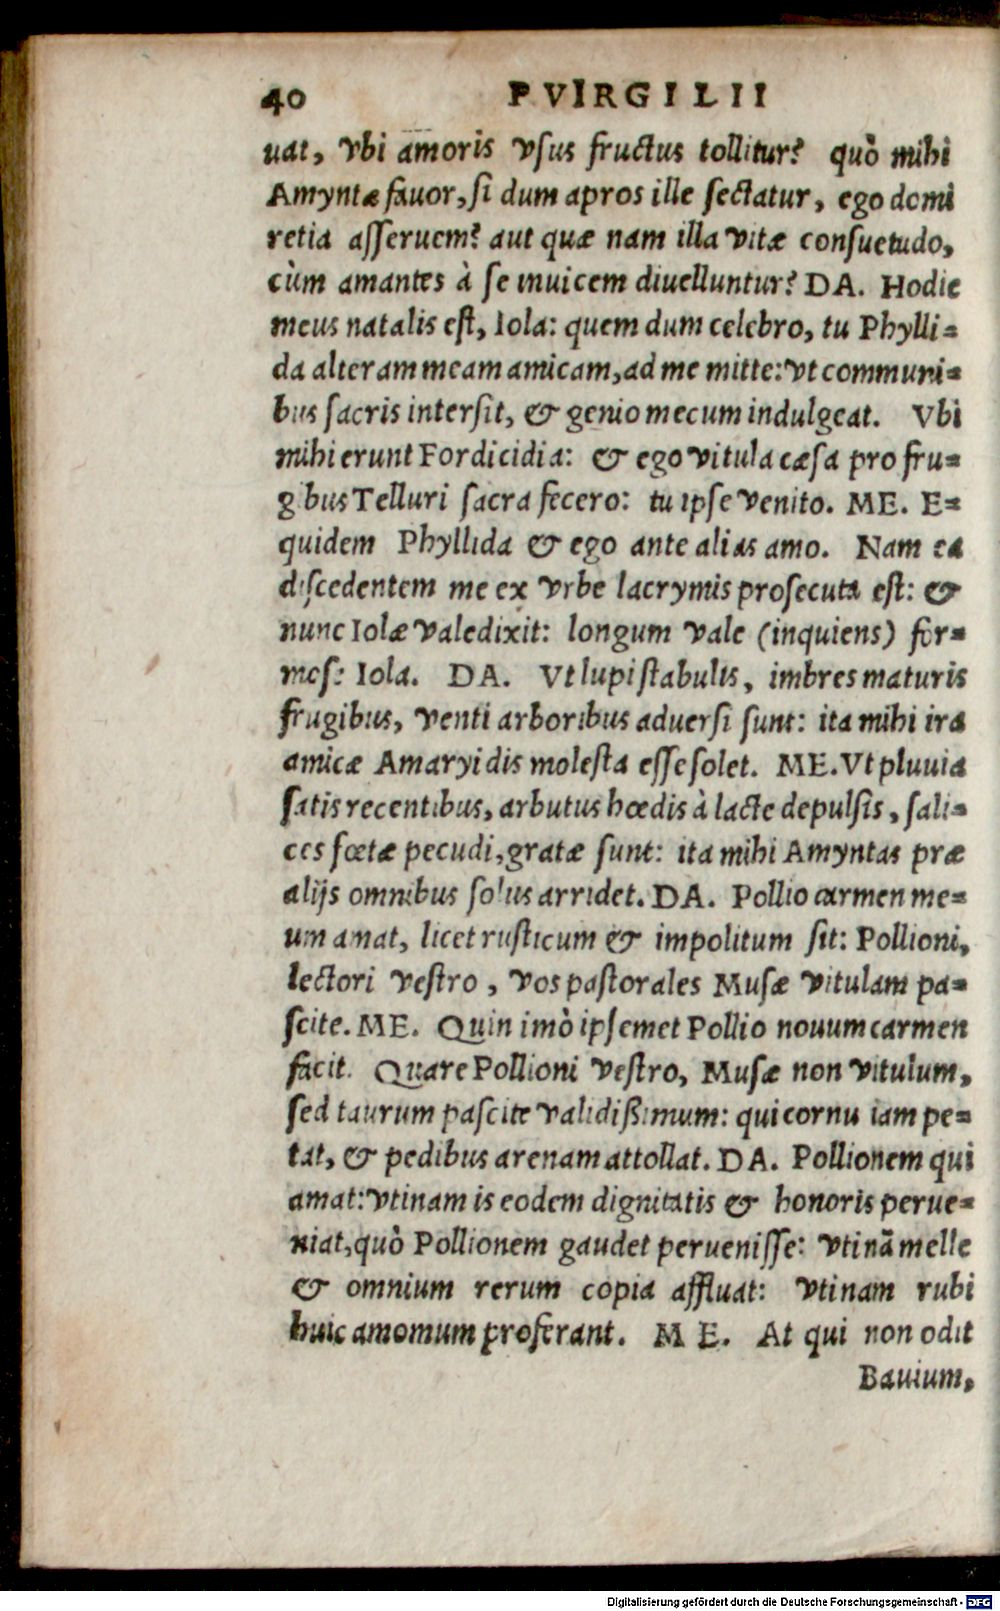 40 P VIRGILII
uat, vbi amoris vsus fructus tollitur? quò mihi
Amyntæ fauor, si dum apros ille sectatur, ego domi
retia asseruem? aut quæ nam illa vitæ consuetudo,
cùm amantes à se inuicem diuelluntur? DA. Hodie
meus natalis est, Iola: quem dum celebro, tu Phylli-
da alteram meam amicam, ad me mitte: vt communi-
bus sacris intersit, & genio mecum indulgeat. Vbi
mihi erunt Fordicidia: & ego vitula cæsa pro fru-
gibus Telluri sacra fecero: tu ipse venito. ME. E-
quidem Phyllida & ego ante alias amo. Nam ea
discedentem me ex vrbe lacrymis prosecuta est: &
nunc Iolæ valedixit: longum vale (inquiens) for-
mose Iola. DA. Vt lupi stabulis, imbres maturis
frugibus, venti arboribus aduersi sunt: ita mihi ira
amicæ Amaryidis molesta esse solet. ME. Vt pluuia
satis recentibus, arbutus hœdis à lacte depulsis, sali-
ces fœtæ pecudi, gratæ sunt: ita mihi Amyntas præ
alijs omnibus solus arridet. DA. Pollio carmen me-
um amat, licet rusticum & impolitum sit: Pollioni,
lectori vestro, vos pastorales Musæ vitulam pa-
scite. ME. Quin imò ipsemet Pollio nouum carmen
facit. Quare Pollioni vestro, Musæ non vitulum,
sed taurum pascite validißimum: qui cornu iam pe-
tat, & pedibus arenam attollat. DA. Pollionem qui
amat: vtinam is eodem dignitatis & honoris perue-
niat, quò Pollionem gaudet peruenisse: vtinã melle
& omnium rerum copia affluat: vtinam rubi
huic amomum proferant. M E. At qui non odit
Bauium,
Digitalisierung gefördert durch die Deutsche Forschungsgemeinschaft - DFG